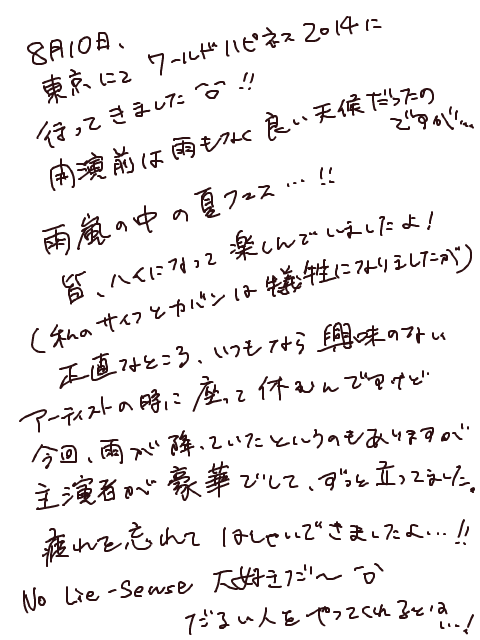 8月10日、
東京にて ワールドハピネス2014に
行ってきました^o^!!
開演前は雨もなく良い天候だったの
ですが…
雨嵐の中の夏フェス…!!
皆、ハイになって楽しんでいましたよ!
(私のサイフとカバンは犠牲になりましたが)
正直なところ、いつもなら興味のない
アーティストの時に座って休むんですけど
今回、雨が降っていたというのもありますが
主演者が豪華でして、ずっと立ってました。
疲れを忘れてはしゃいできましたよ…!!
No Lie-Sense 大好きだ〜^o^
だるい人をやってくれるとは
…!